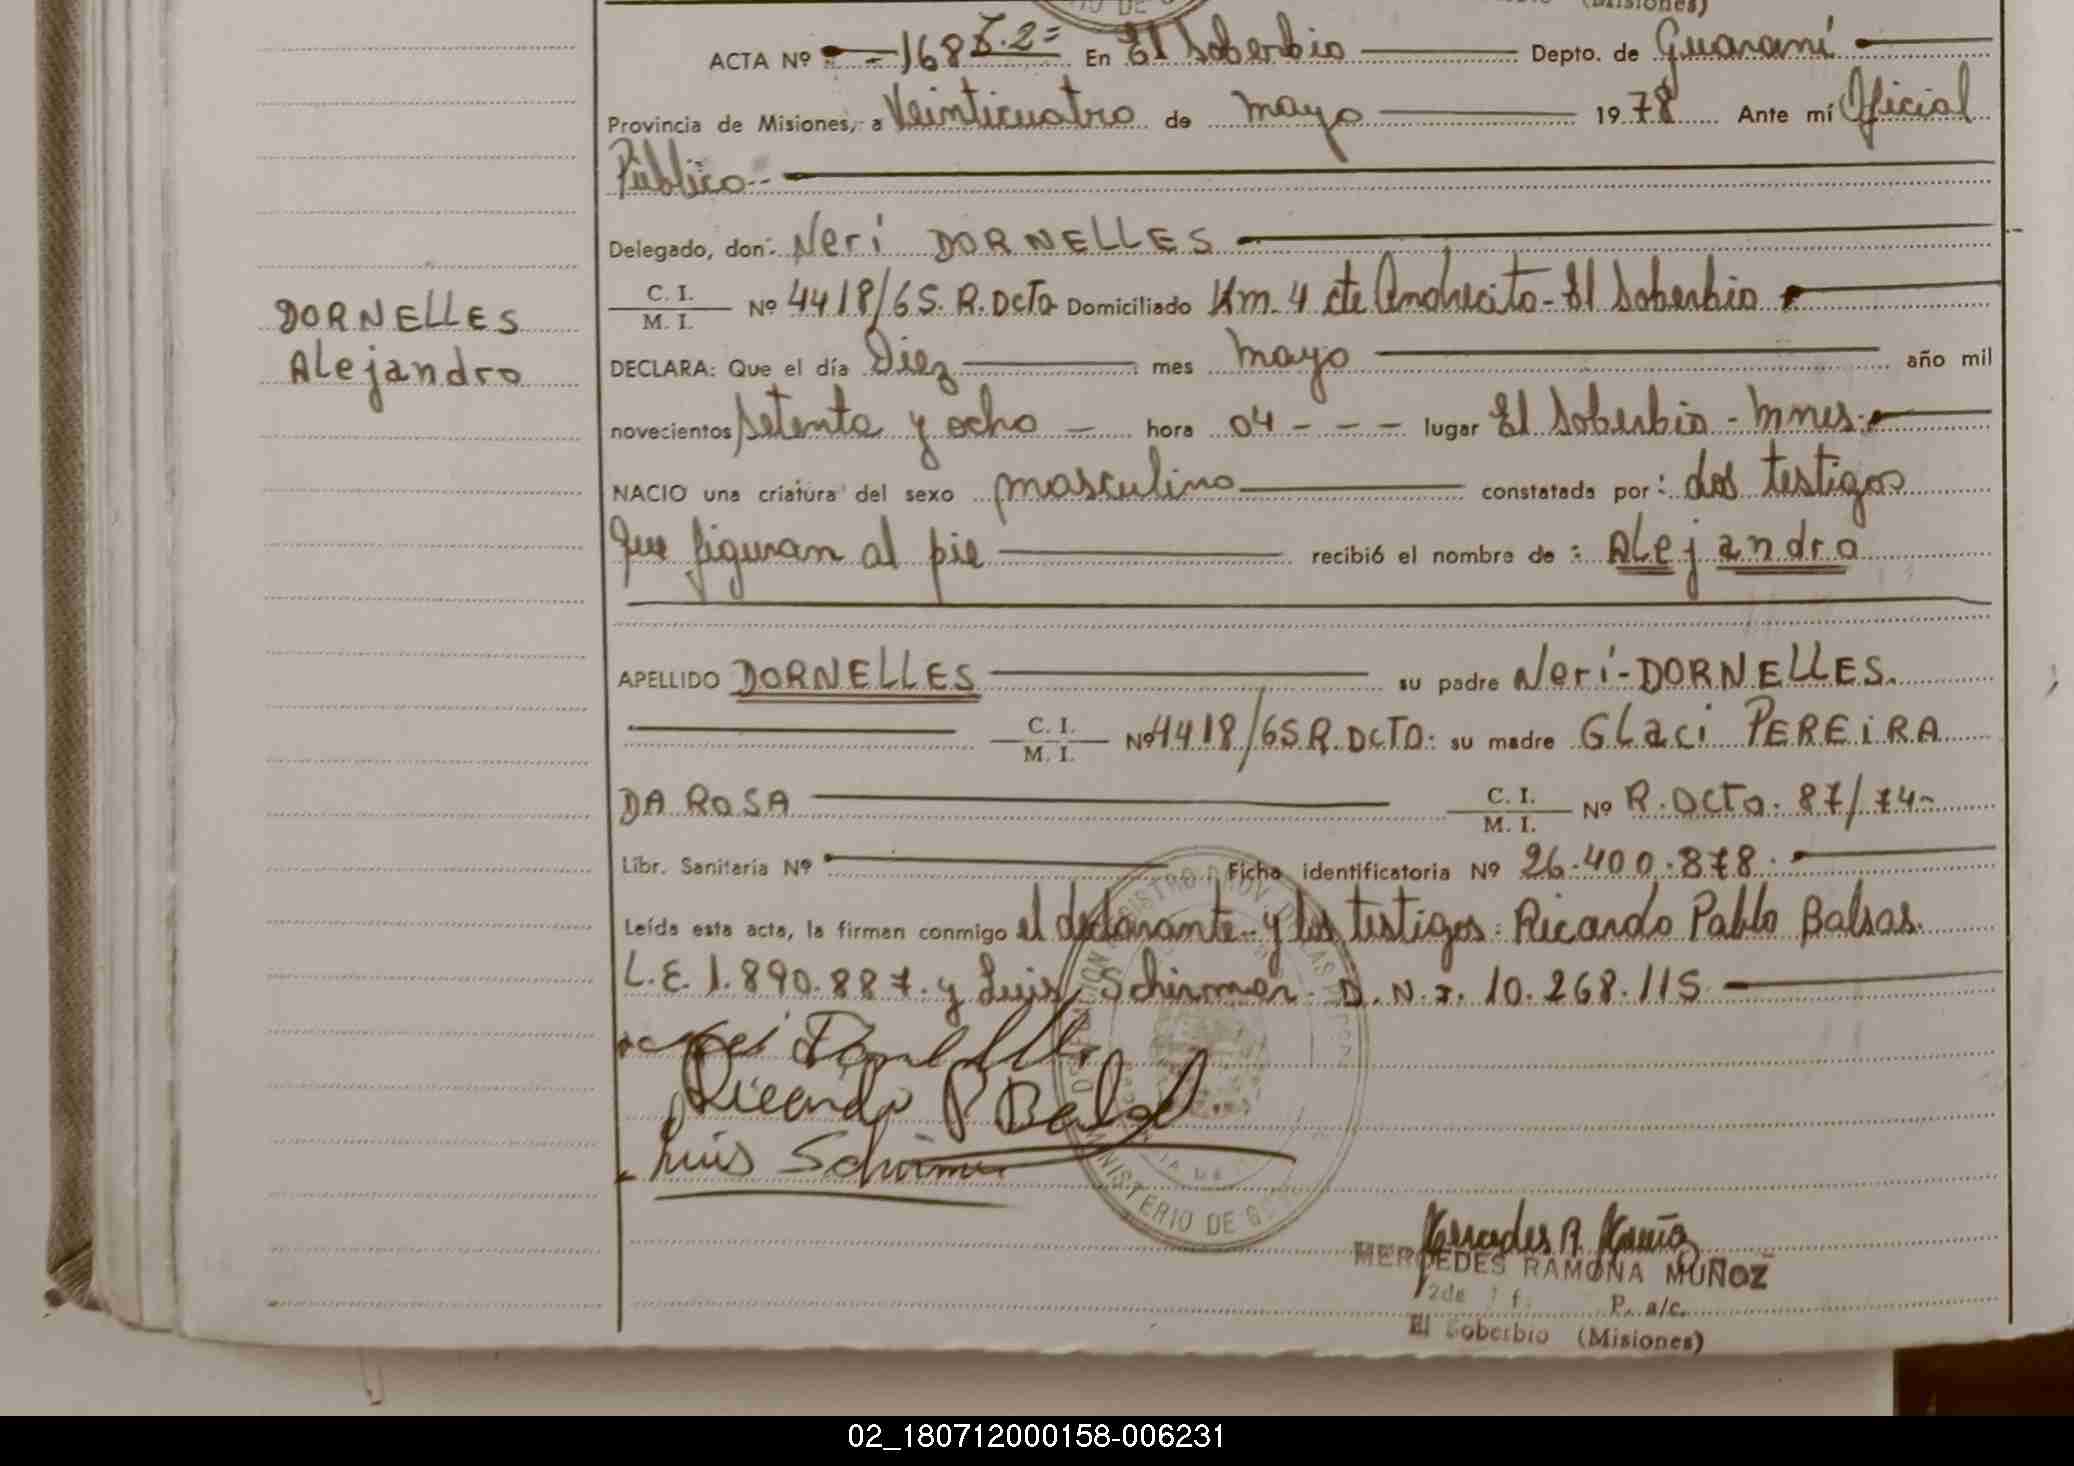 (Misiones)
ACTA Nº 168 En El Soberbio Depto. de Guaraní
Provincia de Misiones, a Veinticuatro de mayo 1978 Ante mí Oficial
Público
Delegado, don: Neri DORNELLES
C. I.
M. I.
Nº 4418/65. R. DCTO Domiciliado Km. 4 cte Andrecito - El Soberbio
DORNELLES
Alejandro
DECLARA: Que el día Diez mes mayo año mil
novecientos setenta y ocho - hora 04 - - - lugar El Soberbio - Mnes.
NACIO una criatura del sexo masculino constatada por: dos testigos
que figuran al pie recibió el nombre de: Alejandro
APELLIDO DORNELLES su padre Neri - DORNELLES.
C. I.
M. I.
Nº 4418/65 R. DCTO. su madre GLaci PEREIRA
DA ROSA
C. I.
M. I.
Nº R. DCTO. 87/74-
Libr. Sanitaria Nº Ficha identificatoria Nº 26.400.878.
Leída esta acta, la firman conmigo el declarante y los testigos: Ricardo Pablo Balsas.
L.E. 1.890.887. y Luis Schirmer. D.N.I. 10.268.115
Ricardo P Balsas
Luis Schirmer
MINISTERIO DE G
Mercedes R. Muñoz
MERCEDES RAMONA MUÑOZ
P. a/c.
El Soberbio (Misiones)
02_180712000158-006231